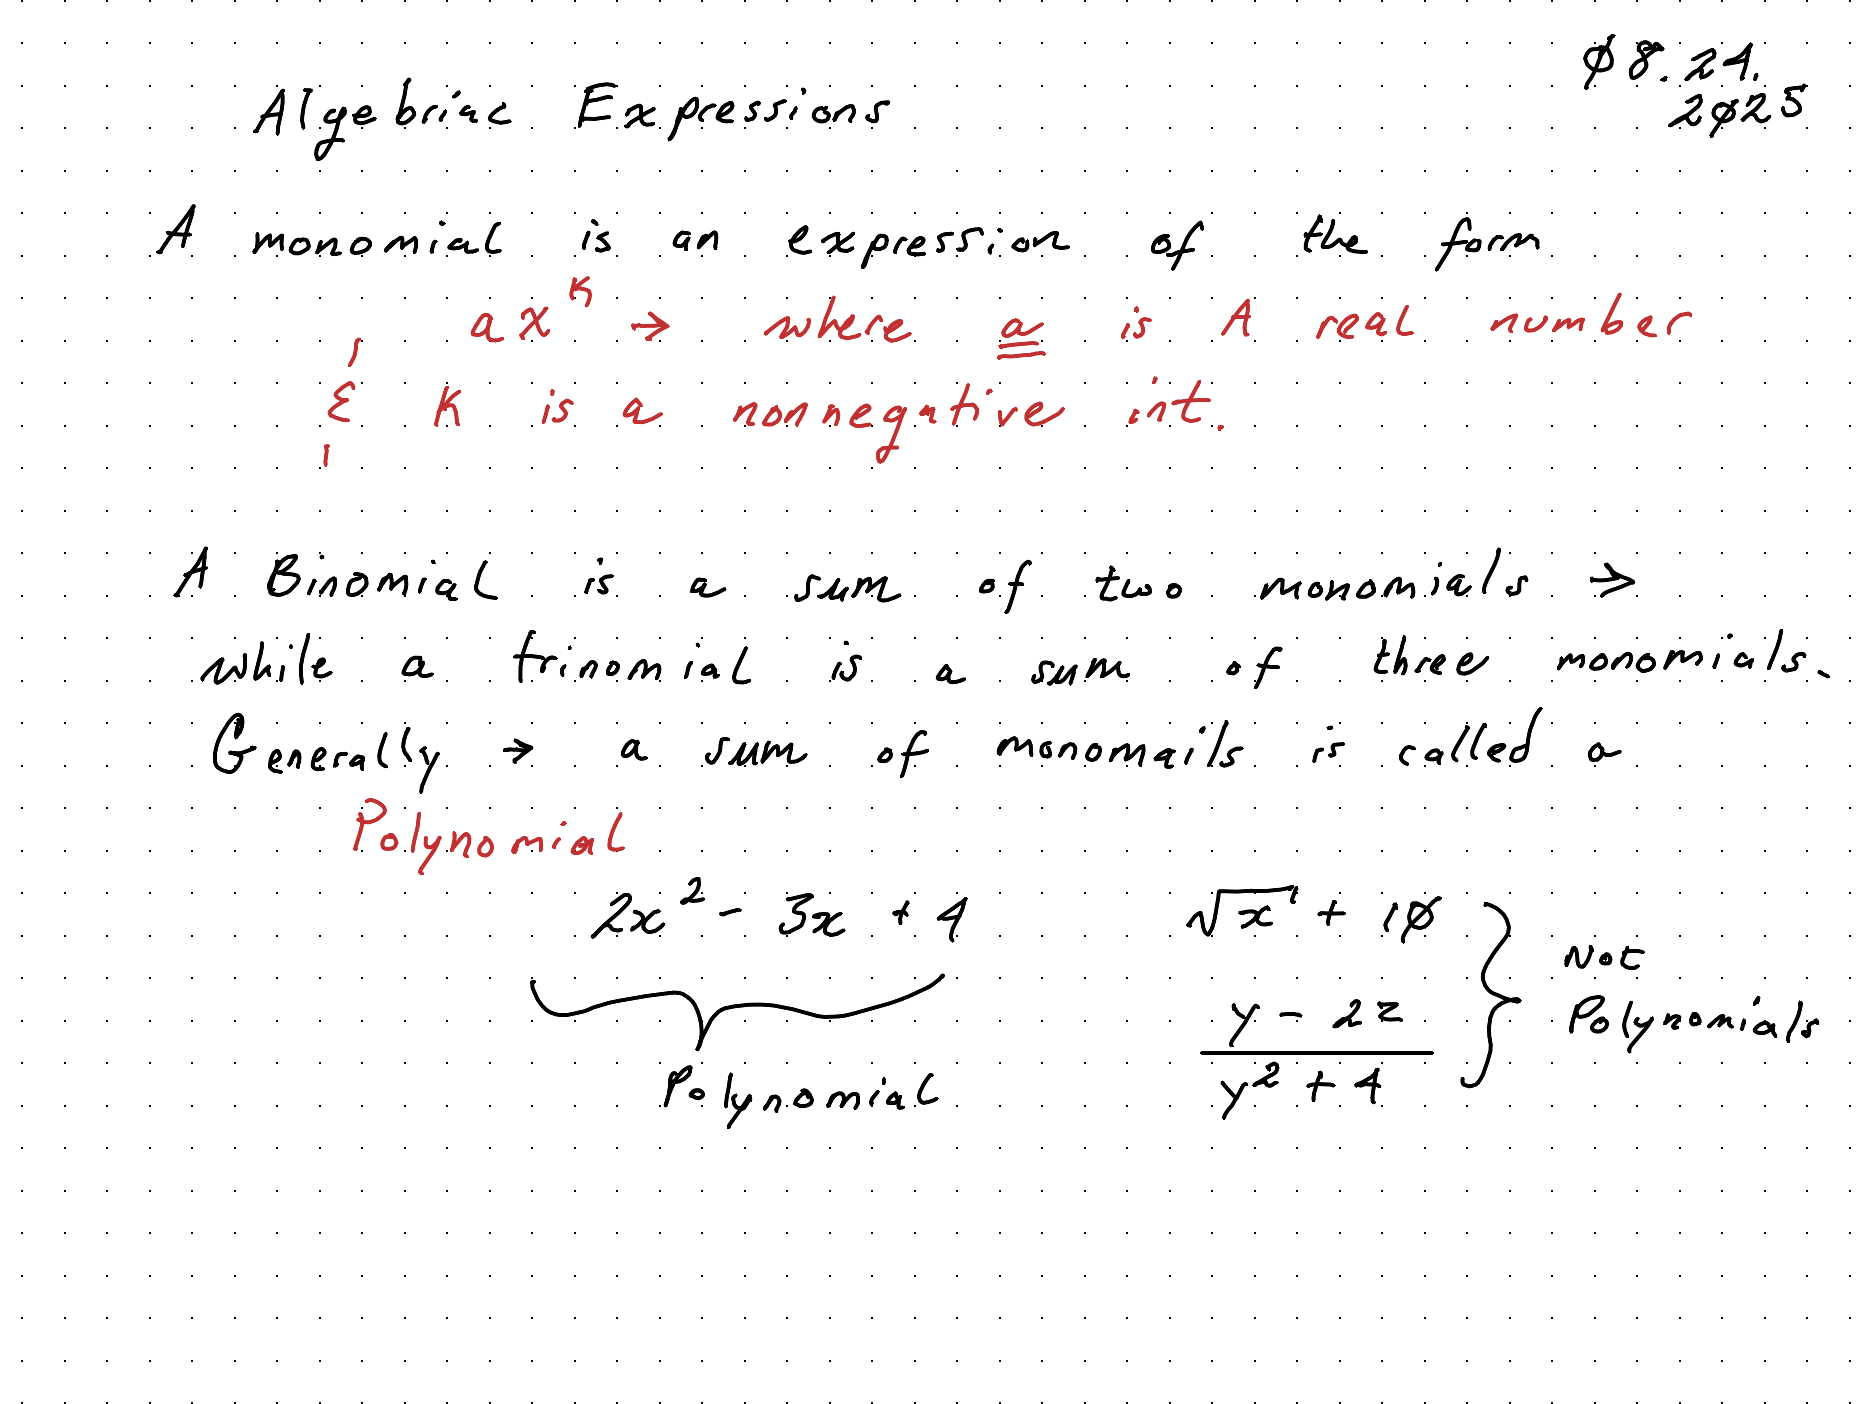 Algebriac Expressions
Ø8.24.
2Ø25
A monomial is an expression of the form
ax^k → where a is A real number
& k is a nonnegative int.
A Binomial is a sum of two monomials →
while a trinomial is a sum of three monomials.
Generally → a sum of monomails is called a
Polynomial
2x² - 3x + 4
√x + 1Ø
y - 2z
y² + 4
Not
Polynomials
Polynomial